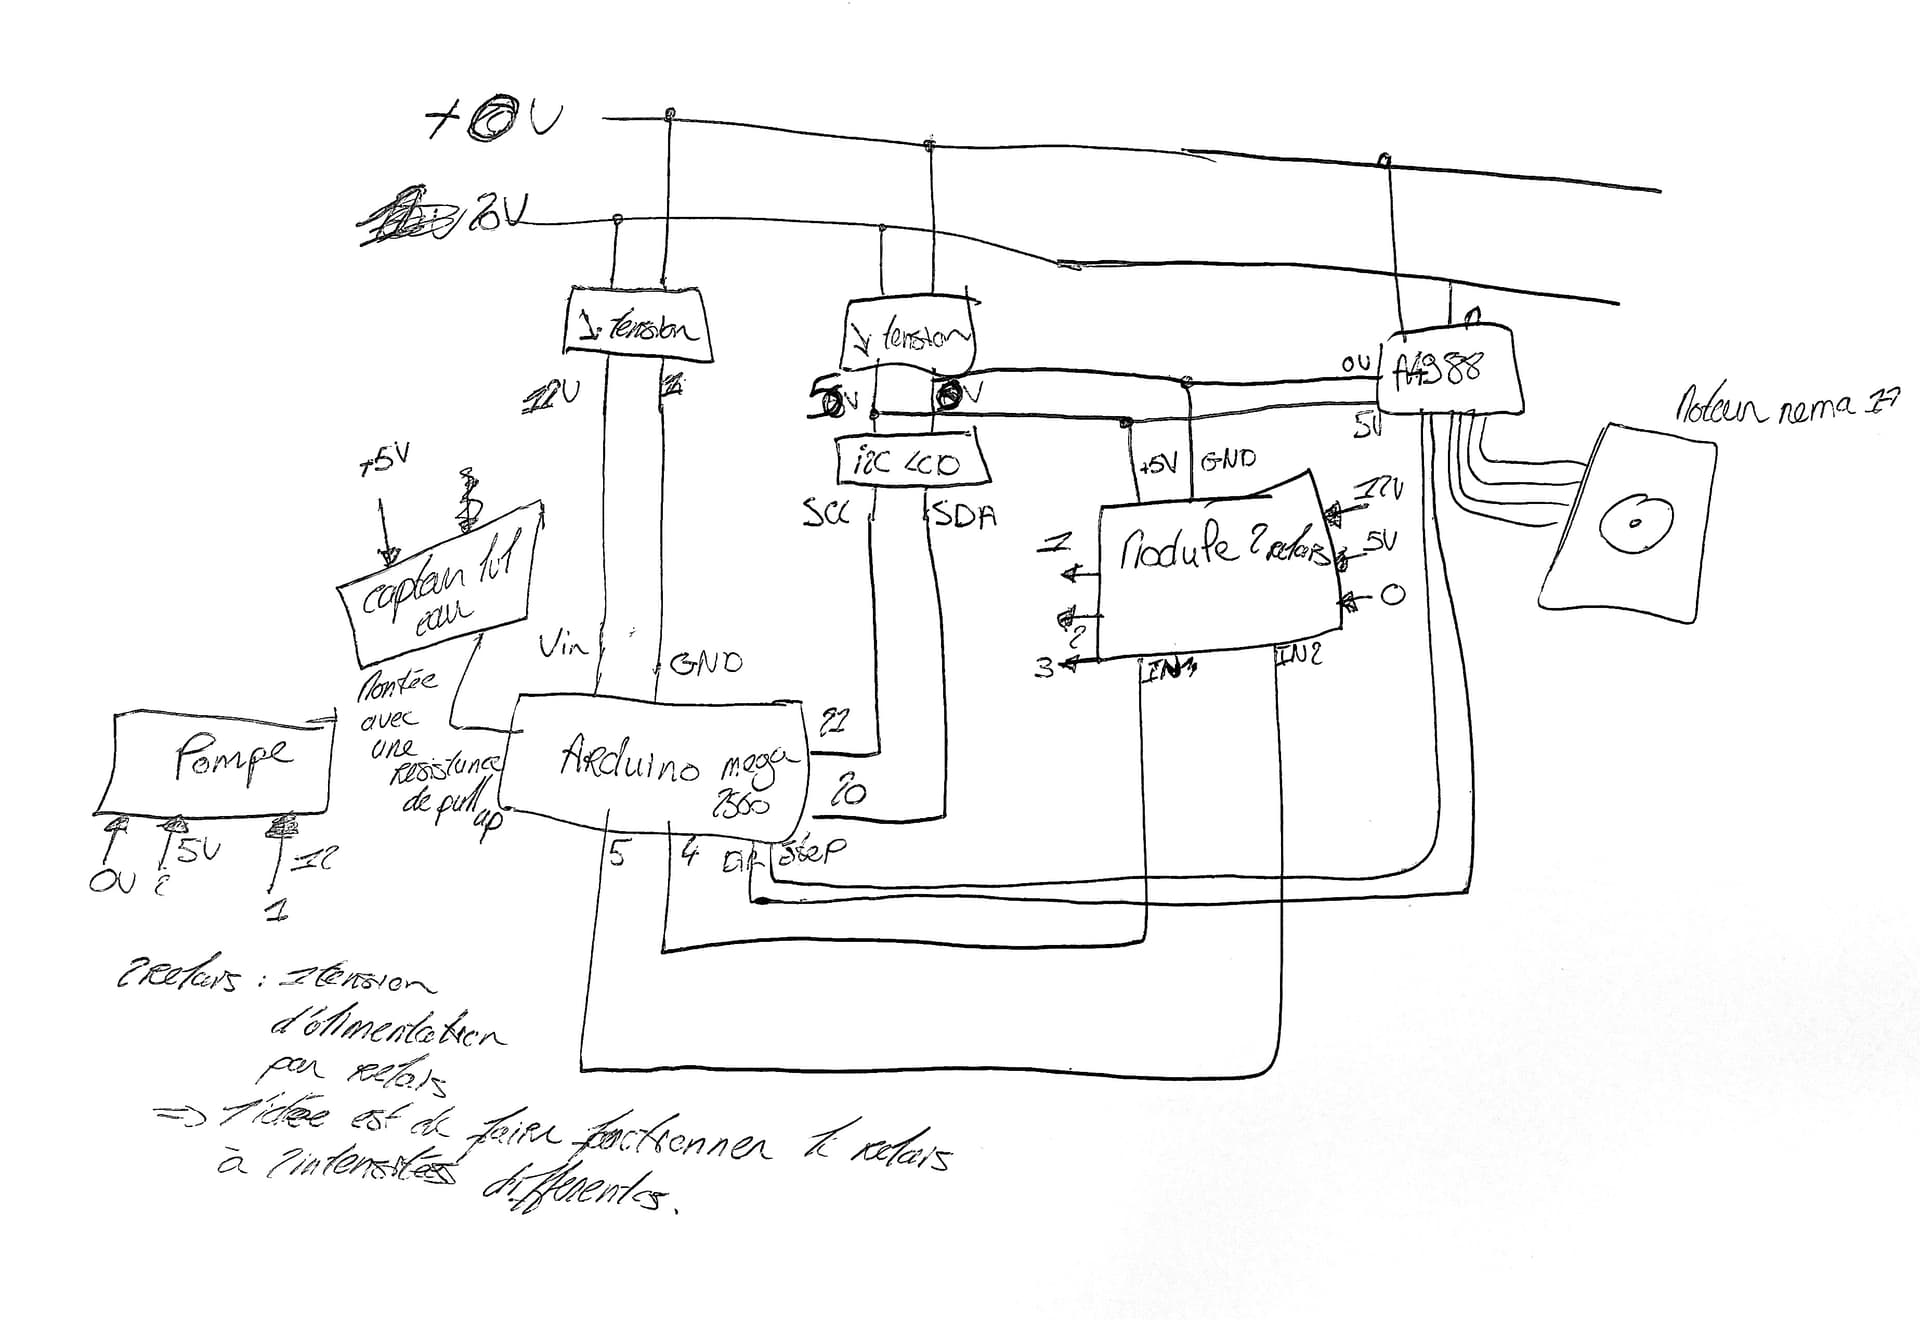 +0V
20V
↓ tension
↓ tension
12V
5V
0V
0V
A4988
5V
Moteur nema 17
+5V
i2C LCD
+5V
GND
SCL
SDA
12V
Module 2 relais
5V
0
1
2
3
IN1
IN2
capteur
eau
Vin
GND
Montée
avec
une
resistance
de pull
up
Pompe
Arduino mega
2560
21
20
5
4
DIR
Step
0V
5V
12
2
1
2 relais : 1 tension
d'alimentation
par relais
=> l'idée est de faire fonctionner le relais
à 2 intensités différentes.